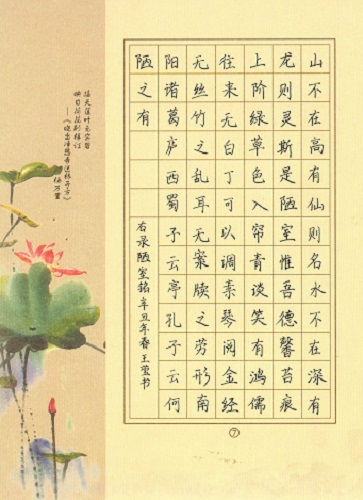 山不在高有仙则名水不在深有
龙则灵斯是陋室惟吾德馨苔痕
上阶绿草色入帘青谈笑有鸿儒
往来无白丁可以调素琴阅金经
无丝竹之乱耳无案牍之劳形南
阳诸葛庐西蜀子云亭孔子云何
陋之有
右录陋室铭辛丑年春王莹书
接天莲叶无穷碧
映日荷花别样红
——《晓出净慈寺送林子方》
杨万里
⑦